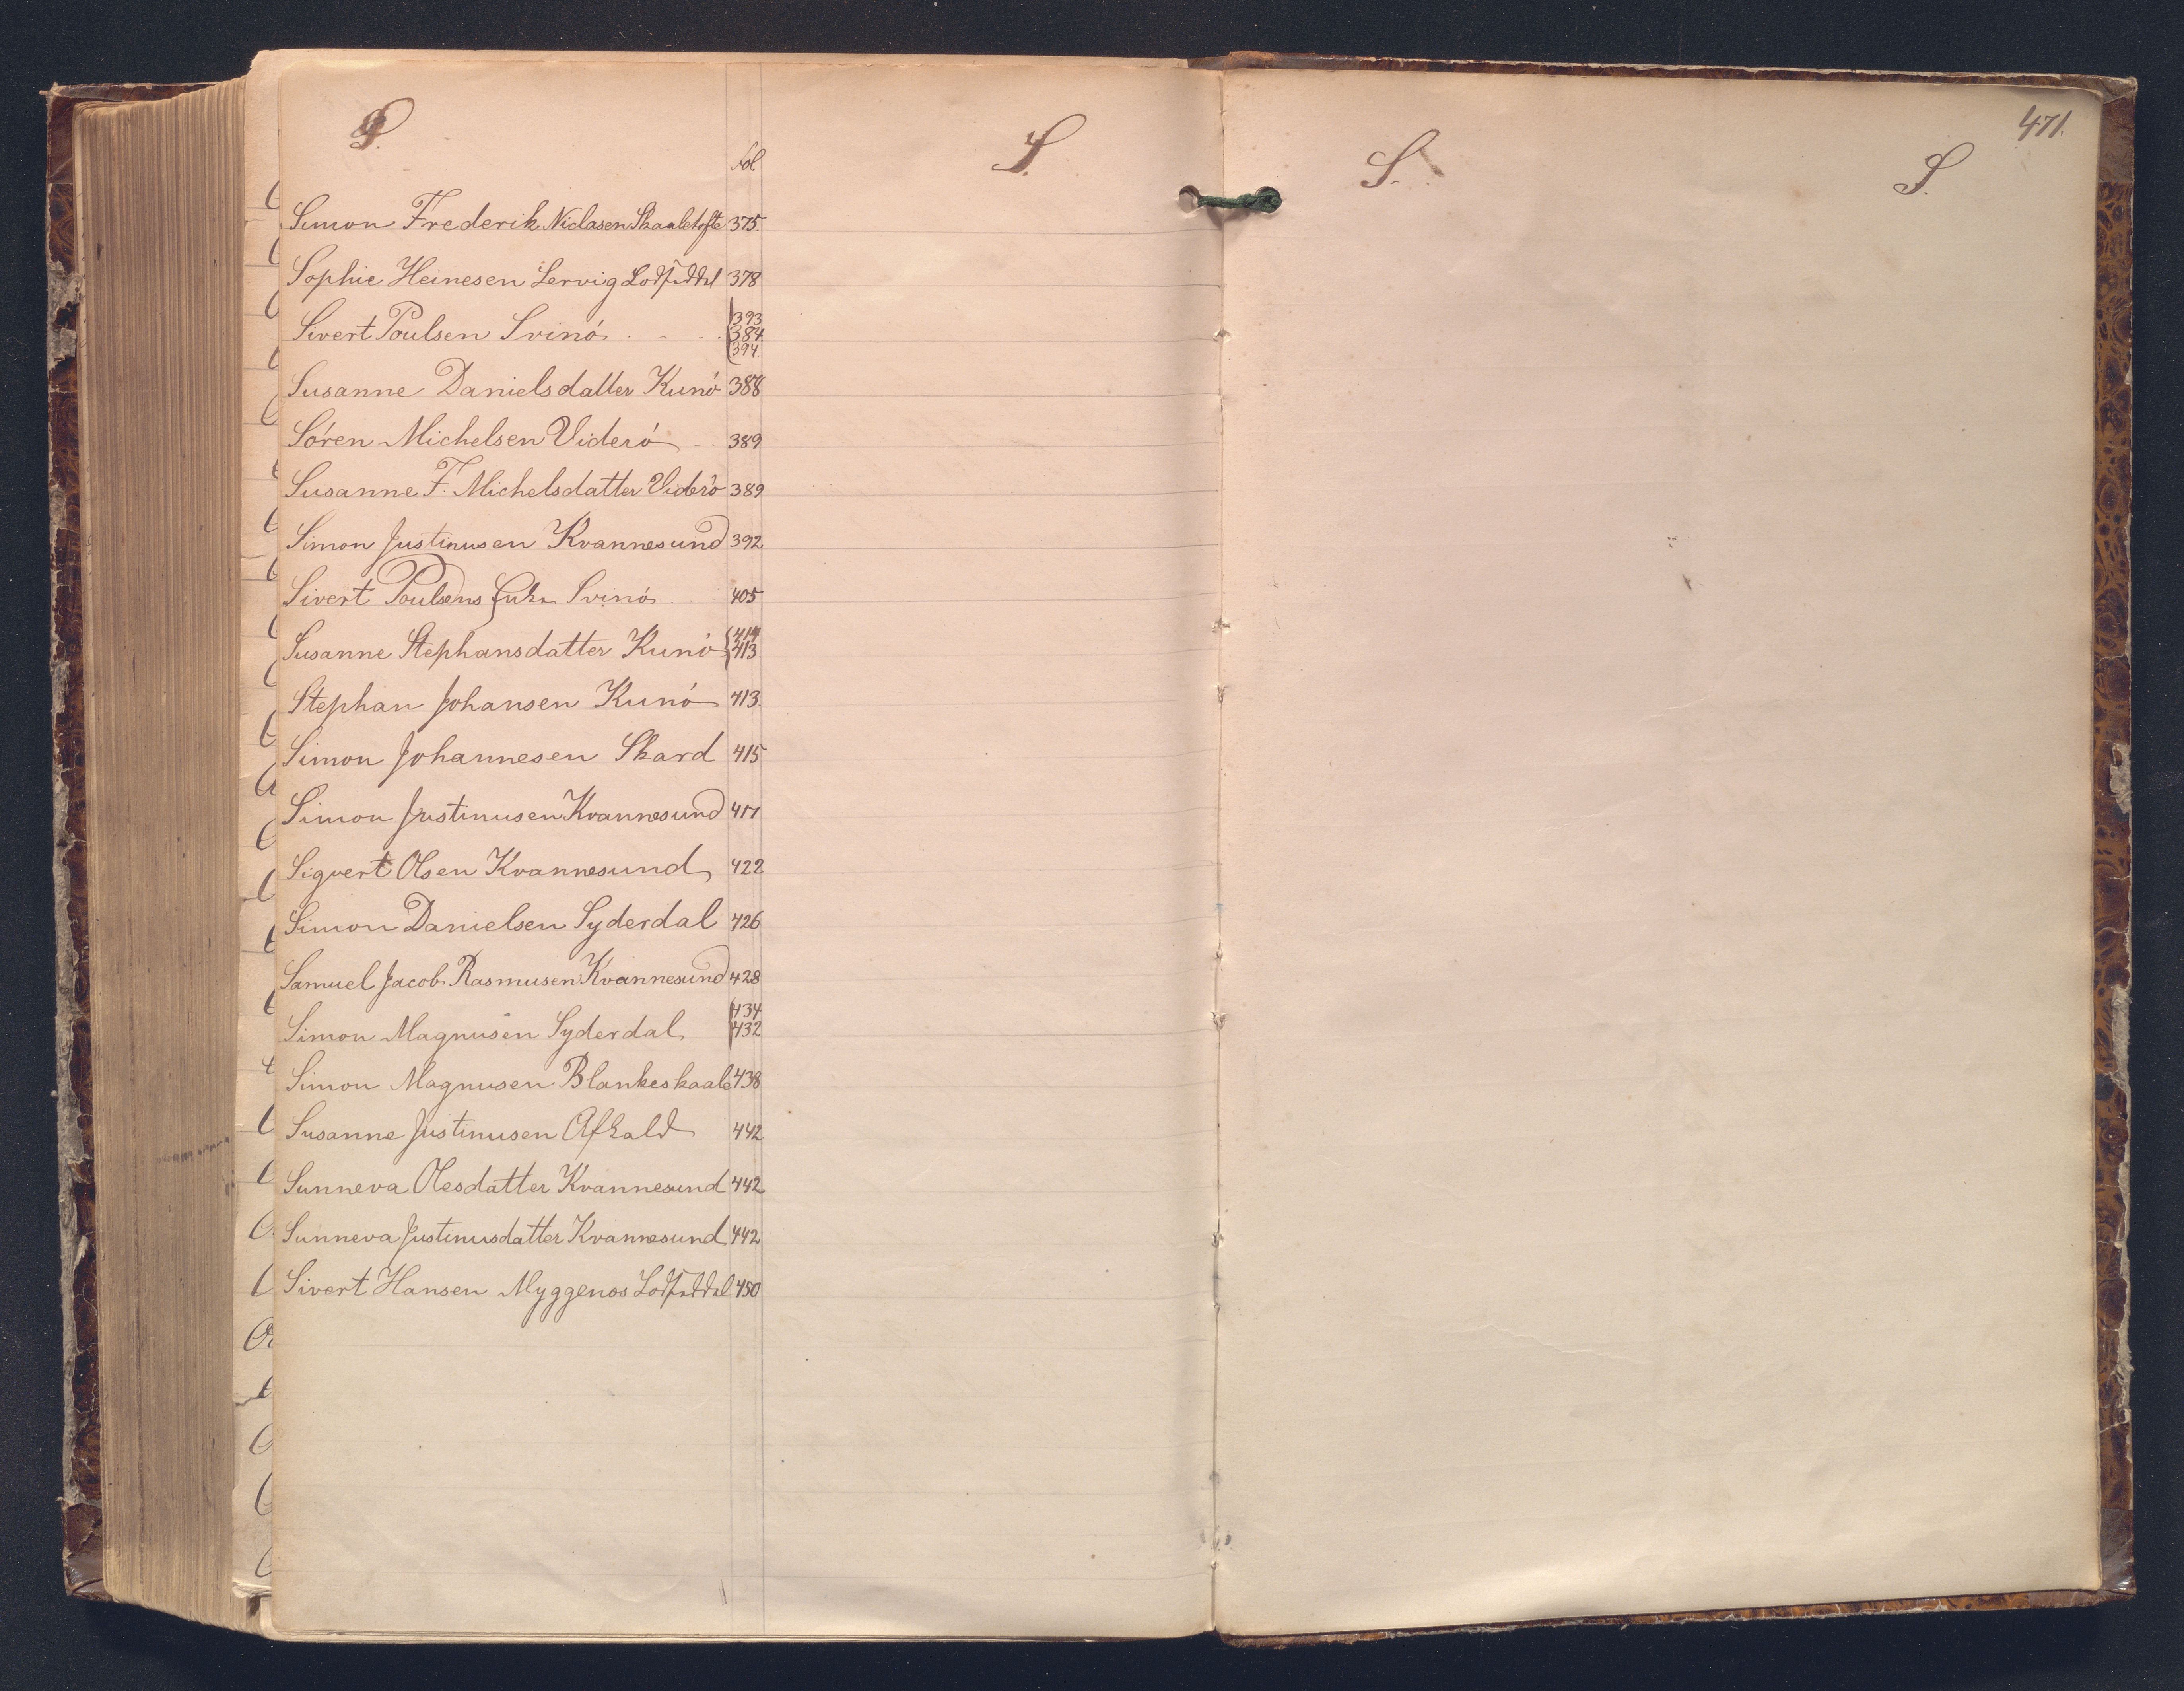 S.
S.
S.
S.
471.
fol
Simon Frederik Niclasen Skaaletofte 375.
Sophie Heinesen Lervig Lodseddel 378
Sivert Poulsen Svinó . - . . 393 384 394.
Susanne Danielsdatter Kunó 388
Sóren Michelsen Videró .. 389
Susanne F. Michelsdatter Videró 389
Simon Justinusen Kvannesund 392
Sivert Poulsens Enke Svinó 405
Susanne Stephansdatter Kunó 414 413.
Stephan Johansen Kunó 413.
Simon Johannesen Skard 415
Simon Justinusen Kvannesund 417
Sigvert Olsen Kvannesund 422
Simon Danielsen Syderdal 426
Samuel Jacob Rasmusen Kvannesund 428
Simon Magnusen Syderdal 434 432
Simon Magnusen Blankeskaale 438
Susanne Justinusen Afkald 442
Sunneva Olesdatter Kvannesund 442
Sunneva Justinusdatter Kvannesund 442
Sivert Hansen Myggenos Lodseddel 450